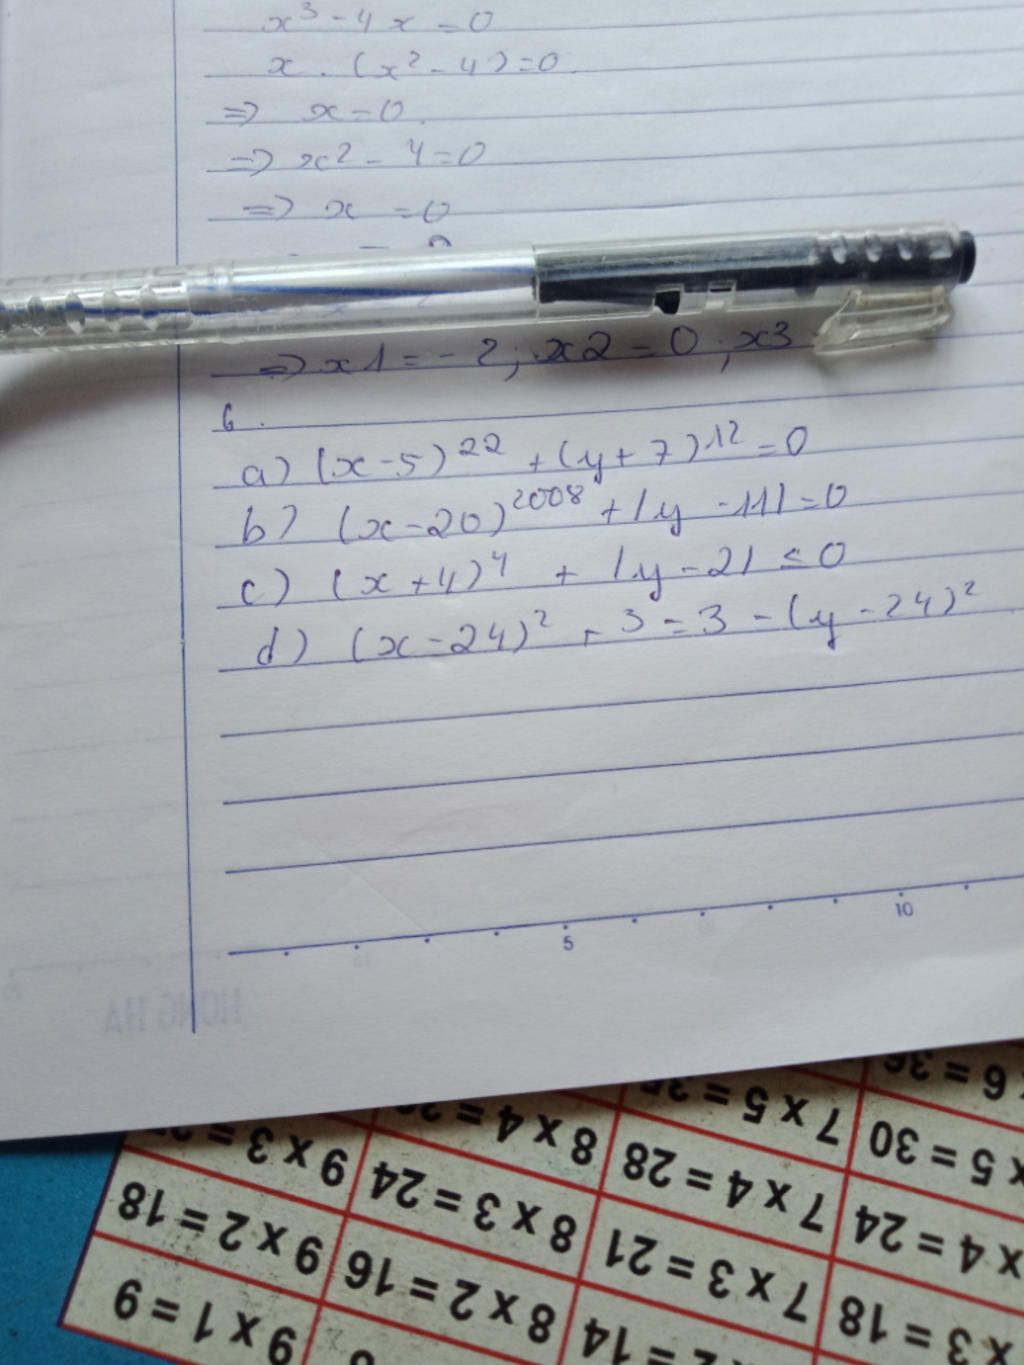 x³ - 4x = 0
x . (x² - 4) = 0.
=> x = 0.
=> x2 - 4 = 0
=> x = 0
=> x1 = - 2; x2 = 0; x3
6.
a) (x-5)²² + (y+7)¹² = 0
b) (x-20)²⁰⁰⁸ + |y - 11| = 0
c) (x+4)⁴ + |y-2| ≤ 0
d) (x-24)² + 3 = 3 - (y-24)²
5 10
HONG HA
6 = 36
7 x 5 = 35
x 5 = 30
9 x 3 =
8 x 4 =
7 x 4 = 28
x 4 = 24
9 x 2 = 18
8 x 3 = 24
7 x 3 = 21
x 3 = 18
9 x 1 = 9
8 x 2 = 16
= 14